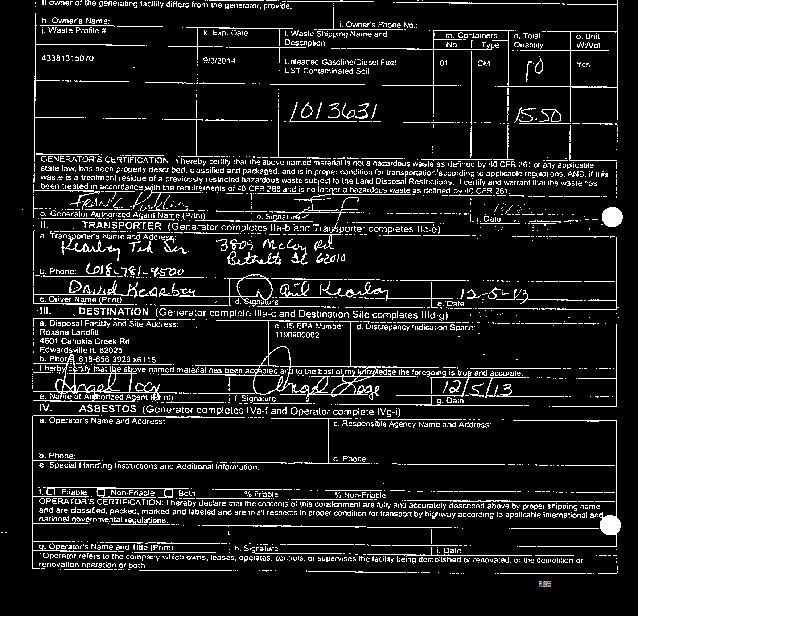 If owner of the generating facility differs from the generator, provide:
h. Owner's Name: i. Owner's Phone No.:
j. Waste Profile # k. Exp. Date l. Waste Shipping Name and Description m. Containers No. Type n. Total Quantity o. Unit Wt/Vol
9/3/2014 Unleaded Gasoline/Diesel Fuel UST Contaminated Soil 01 CM 10 Yds
1013631 15.50
GENERATOR'S CERTIFICATION: I hereby certify that the above named material is not a hazardous waste as defined by 40 CFR 261 or any applicable
state law, has been properly described, classified and packaged, and is in proper condition for transportation according to applicable regulations, AND, if this
waste is a treatment residue of a previously restricted hazardous waste subject to the Land Disposal Restrictions, I certify and warrant that the waste has
been treated in accordance with the requirements of 40 CFR 268 and is no longer a hazardous waste as defined by 40 CFR 261.
Frank
p. Generator Authorized Agent Name (Print) q. Signature r. Date
II. TRANSPORTER (Generator completes IIa-b and Transporter completes IIc-e)
a. Transporter's Name and Address:
3809 McCoy Rd
62010
b. Phone: 618-781-9500
David 12-5-13
c. Driver Name (Print) d. Signature e. Date
III. DESTINATION (Generator complete IIIa-c and Destination Site completes IIId-g)
a. Disposal Facility and Site Address: c. US EPA Number d. Discrepancy Indication Space:
Roxana Landfill
4601 Cahokia Creek Rd
Edwardsville IL 62025
b. Phone:
I hereby certify that the above named material has been accepted and to the best of my knowledge the foregoing is true and accurate.
Angel 12/5/13
e. Name of Authorized Agent (Print) f. Signature g. Date
IV. ASBESTOS (Generator completes IVa-f and Operator complete IVg-i)
a. Operator's Name and Address: c. Responsible Agency Name and Address:
b. Phone: d. Phone:
e. Special Handling Instructions and Additional Information:
f. Friable Non-Friable Both % Friable % Non-Friable
OPERATOR'S CERTIFICATION: I hereby declare that the contents of this consignment are fully and accurately described above by proper shipping name
and are classified, packed, marked and labeled and are in all respects in proper condition for transport by highway according to applicable international and
national governmental regulations.
g. Operator's Name and Title (Print) h. Signature i. Date
*Operator refers to the company which owns, leases, operates, controls, or supervises the facility being demolished or renovated, or the demolition or
renovation operation or both